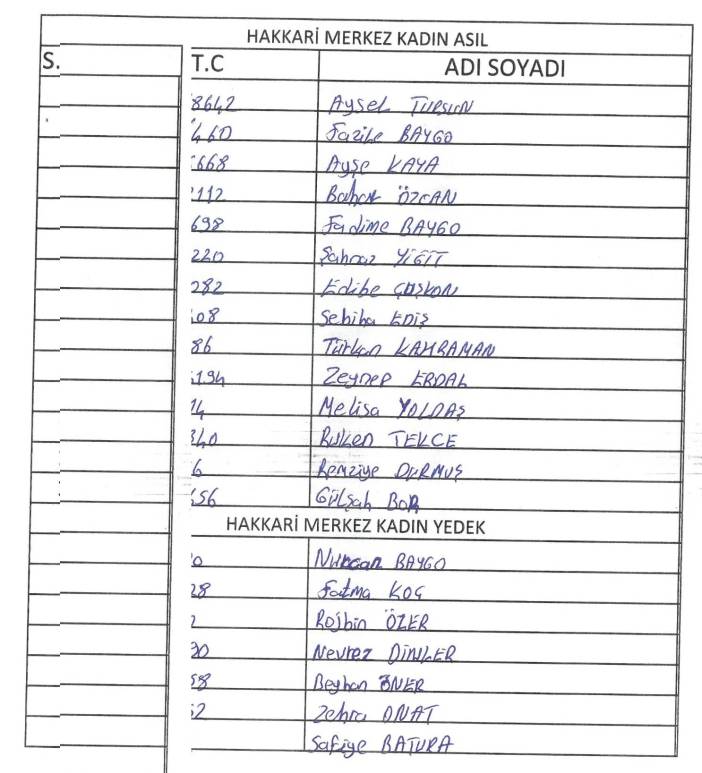 HAKKARİ MERKEZ KADIN ASIL
S. T.C ADI SOYADI
8642 Aysel TURSUN
460 Fazile BAYGO
668 Ayşe KAYA
112 Bahar ÖZCAN
698 Fadime BAYGO
220 Şahnaz YİĞİT
282 Edibe ÇOŞKUN
08 Sebiha EDİŞ
86 Türkan KAHRAMAN
194 Zeynep ERDAL
14 Melisa YOLDAŞ
340 Ruken TEKCE
6 Remziye DURMUŞ
56 Gülşah BOR
HAKKARİ MERKEZ KADIN YEDEK
0 Nurcan BAYGO
28 Fatma KOÇ
2 Rojbin ÖZER
30 Nevrez DİNLER
58 Beyhan ÖNER
52 Zehra ONAT
Safiye BATURA